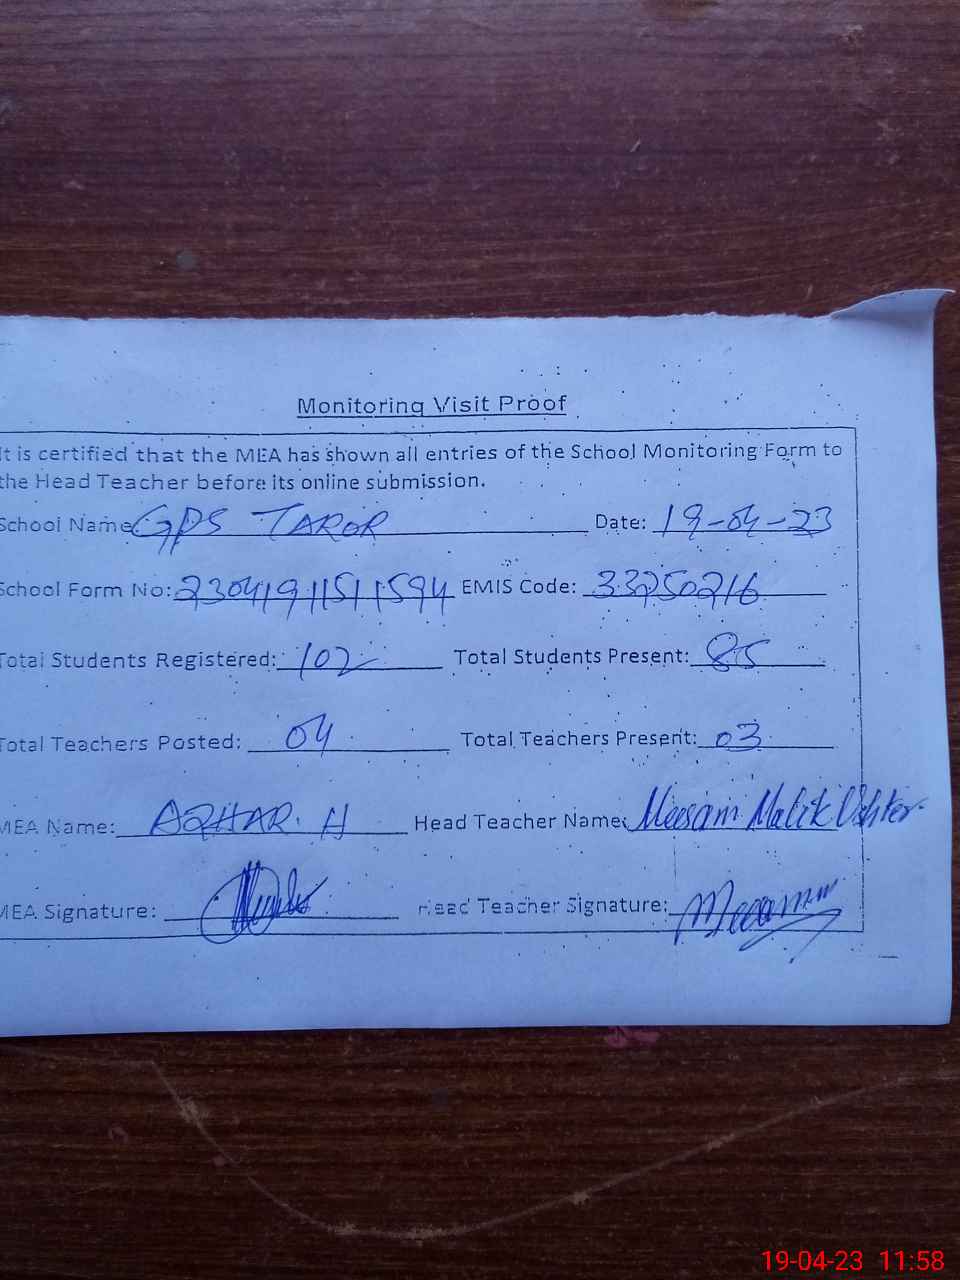 Monitoring Visit Proof
It is certified that the MEA has shown all entries of the School Monitoring Form to
the Head Teacher before its online submission.
School Name GPS TAROR Date: 19-04-23
School Form No: 23041911511594 EMIS Code: 33250216
Total Students Registered: 102 Total Students Present: 85
Total Teachers Posted: 04 Total Teachers Present: 03
MEA Name: AZHAR. H Head Teacher Name: Meesam Malik Ushter
MEA Signature: Head Teacher Signature: Meesam
19-04-23 11:58